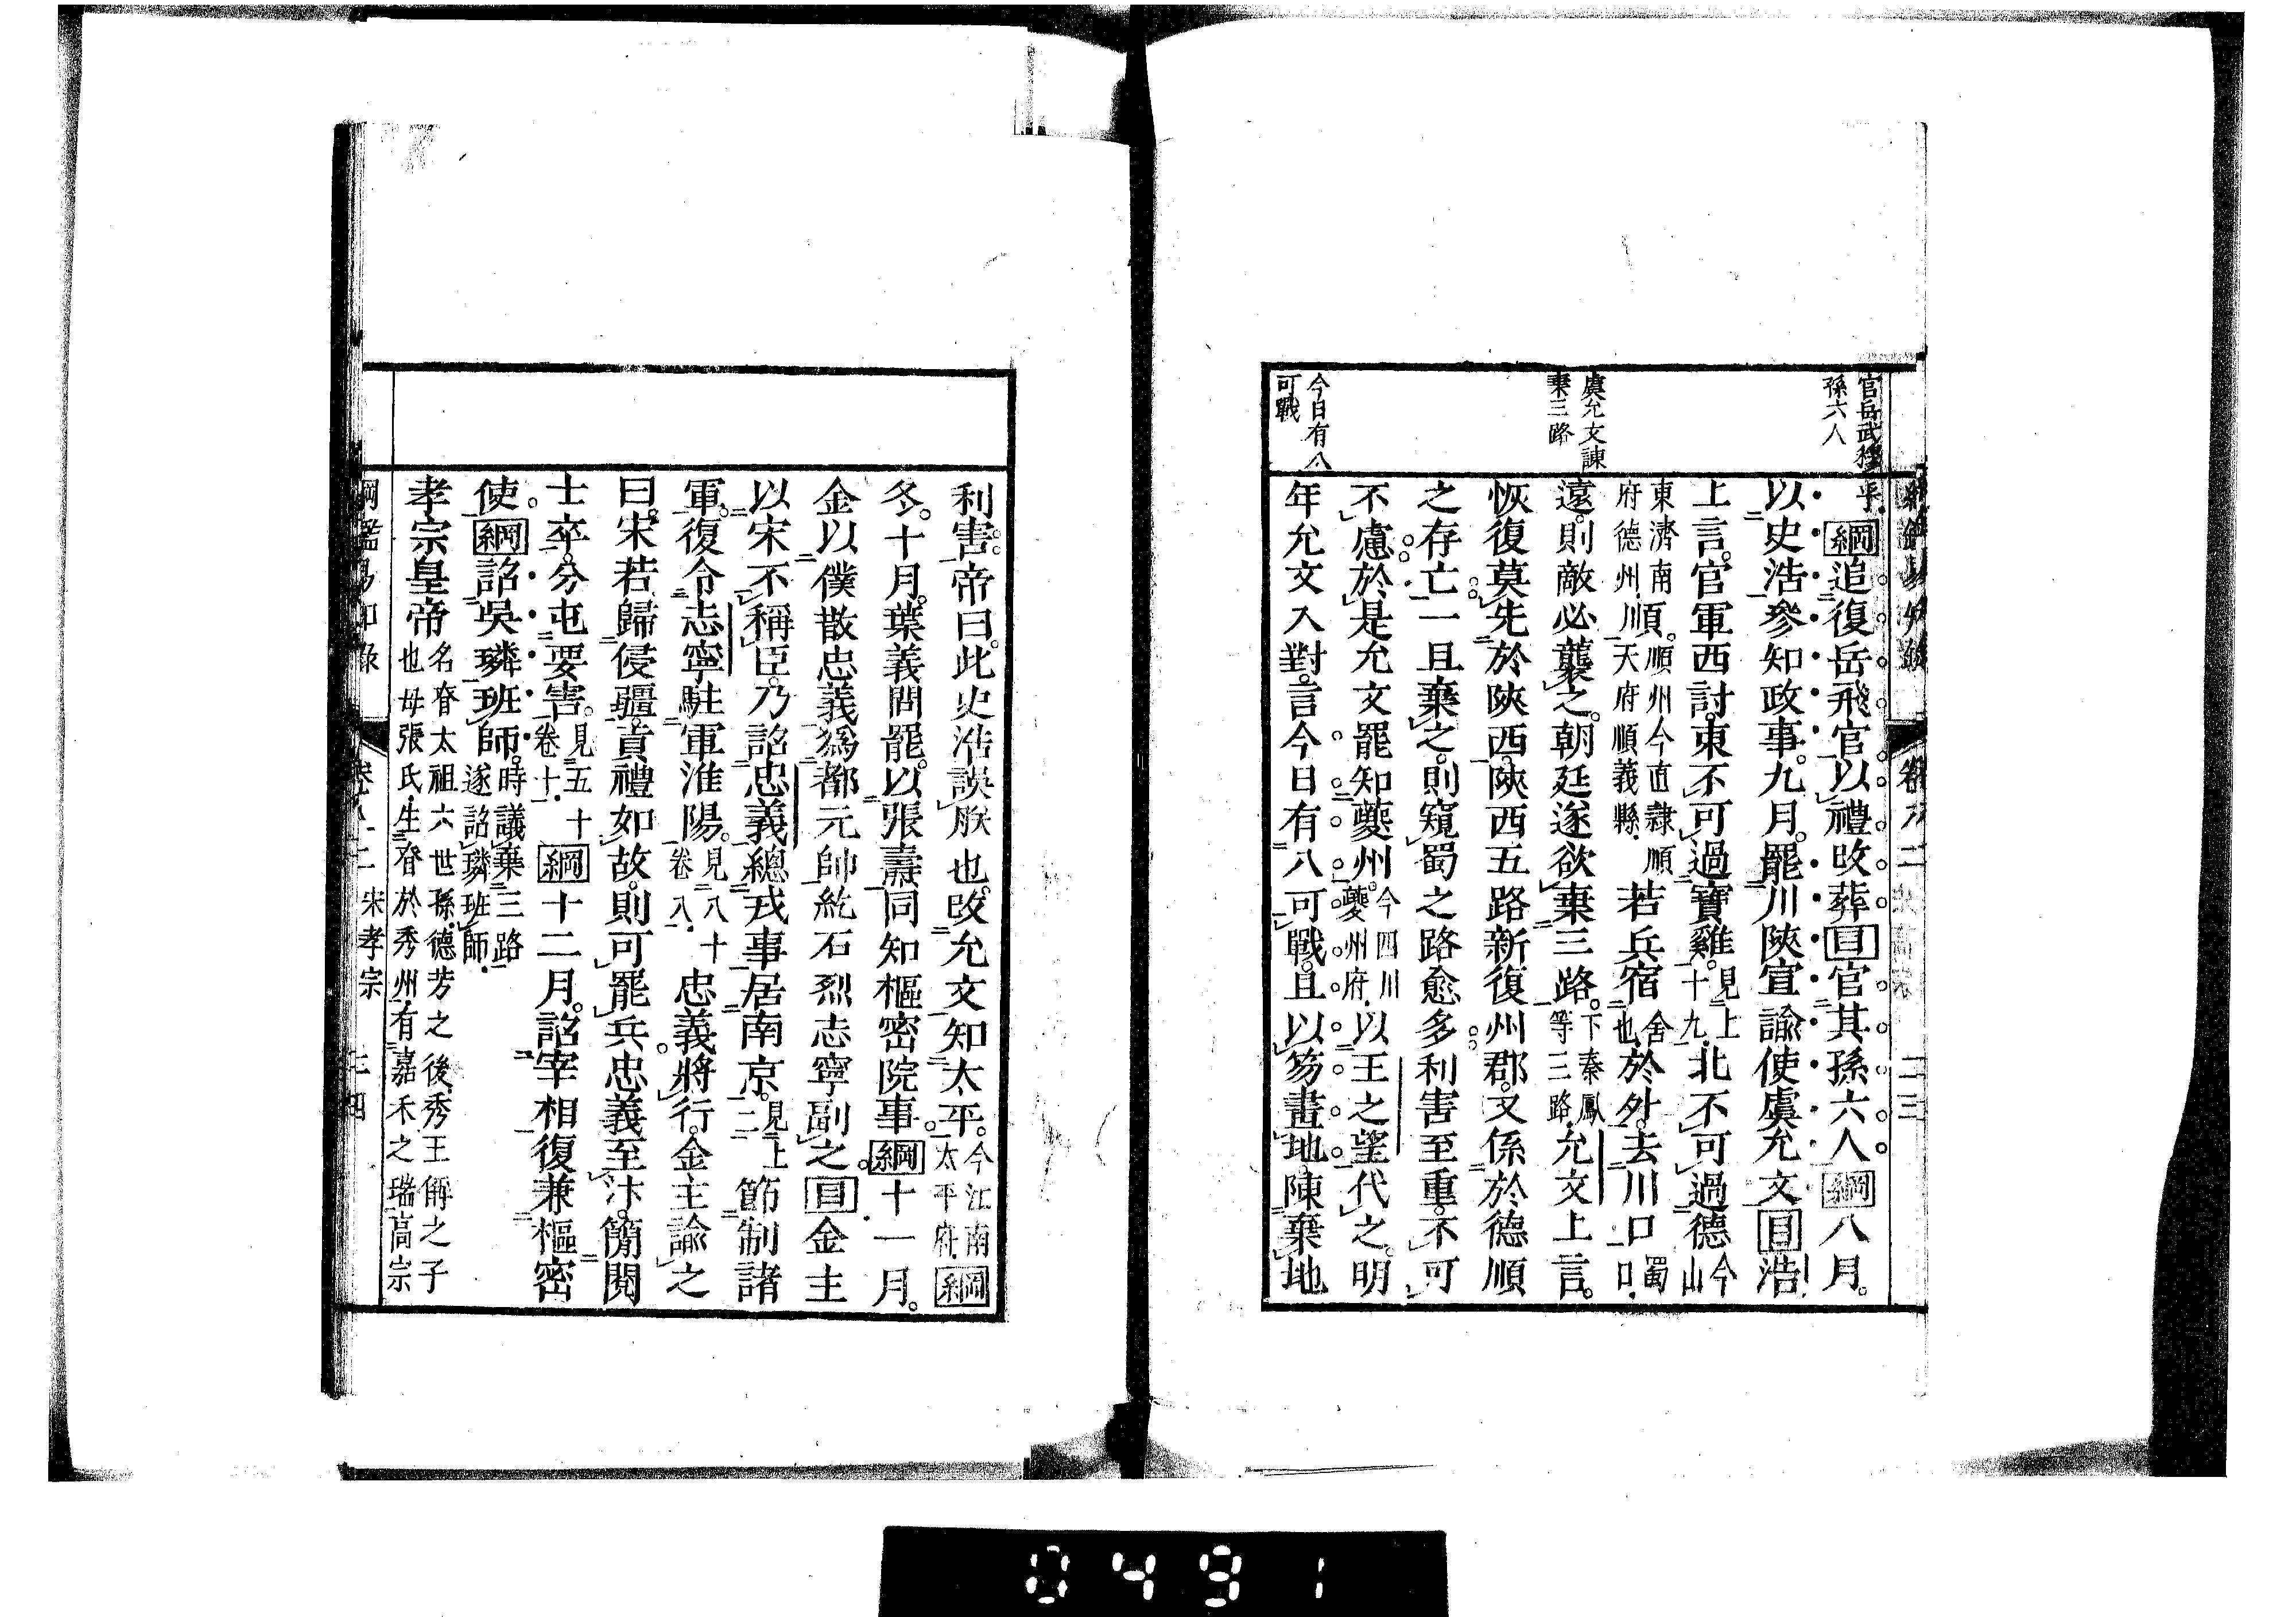 官岳武穆
孫六人
虞允文諫
棄三路
今日有八
可戰
平綱追復岳飛官以禮改葬目官其孫六人綱八月
以史浩參知政事九月罷川陝宣諭使虞允文目浩
上言官軍西討東不可過寶雞見上十九北不可過德今山
東濟南府德州順川順州今直隸順天府順義縣若兵宿舍也於外去川口蜀口
遠則敵必襲之朝廷遂欲棄三路下秦鳳等三路允文上言
恢復莫先於陝西陝西五路新復州郡又係於德順
之存亡一旦棄之則窺蜀之路愈多利害至重不可
不慮於是允文罷知夔州今四川夔州府以王之望代之明
年允文入對言今日有八可戰且以笏畫地陳棄地
利害帝曰此史浩誤朕也改允文知太平今江南太平府綱
冬十月葉義問罷以張燾同知樞密院事綱十一月
金以僕散忠義爲都元帥紇石烈志寧副之目金主
以宋不稱臣乃詔忠義總戎事居南京見上二節制諸
軍復令志寧駐軍淮陽見八十卷八忠義將行金主諭之
曰宋若歸侵疆貢禮如故則可罷兵忠義至汴簡閱
士卒分屯要害見五十卷十一綱十二月詔宰相復兼樞密
使綱詔吳璘班師時議棄三路遂詔璘班師
孝宗皇帝名眘太祖六世孫德芳之後秀王偁之子也母張氏生眘於秀州有嘉禾之瑞高宗
綱鑑易知錄 卷八二 宋孝宗
0491